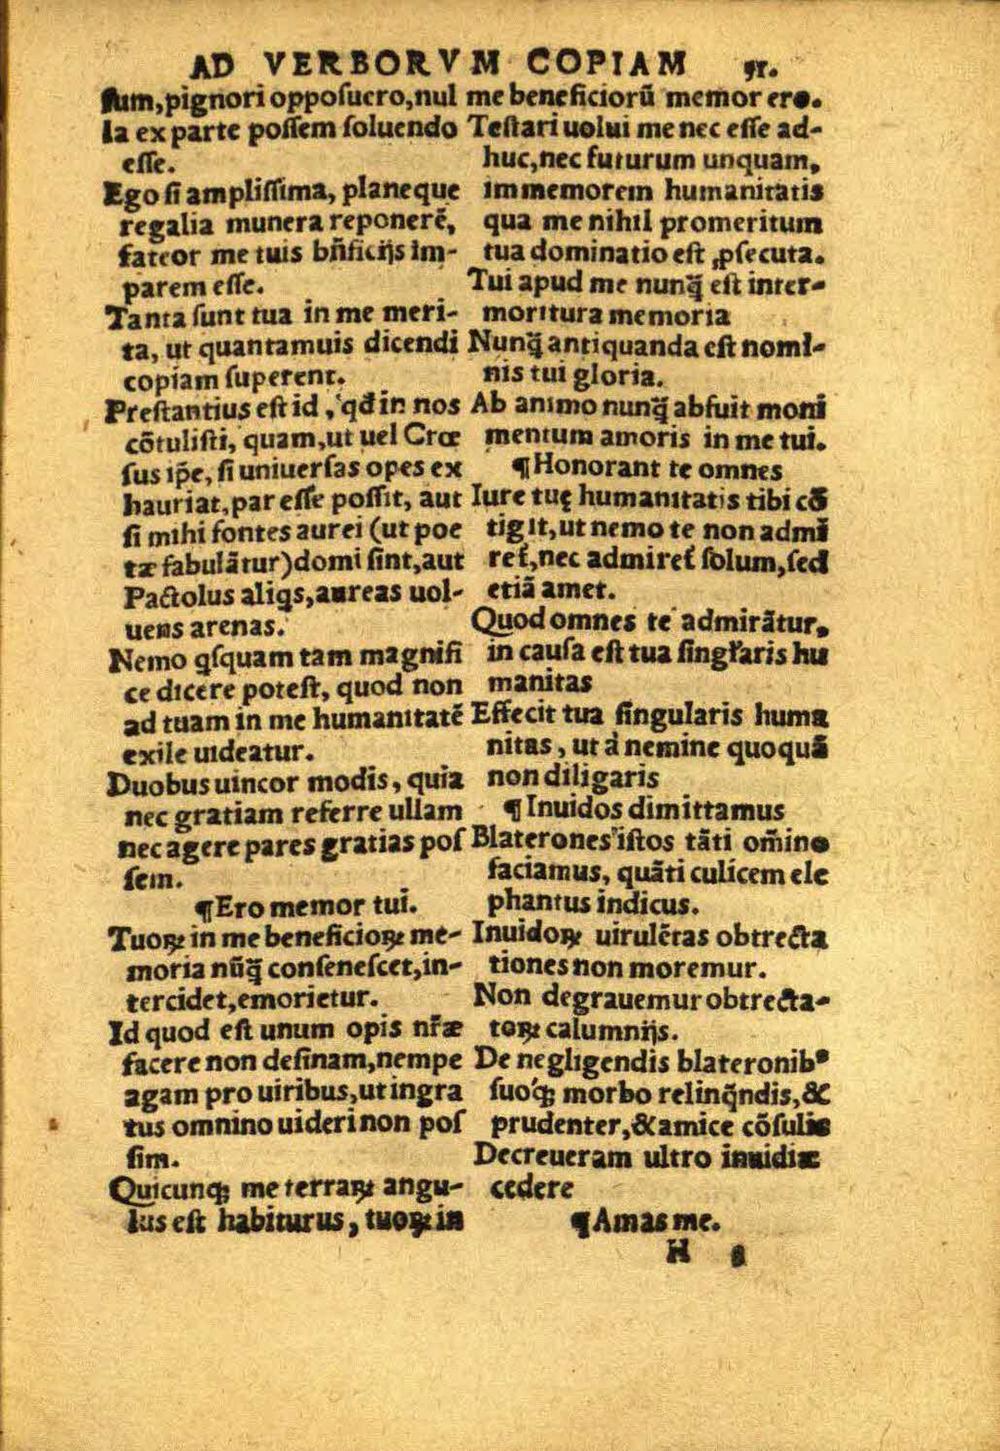 AD VERBORVM COPIAM 57.
sum,pignori opposuero,nul
la ex parte possem soluendo
esse.
Ego si amplissima, planeque
regalia munera reponerē,
fateor me tuis bñficijs im-
parem esse.
Tanta sunt tua in me meri-
ta, ut quantamuis dicendi
copiam superent.
Prestantius est id, qđ in nos
cōtulisti, quam,ut uel Crœ
sus ip̄e, si uniuersas opes ex
hauriat,par esse possit, aut
si mihi fontes aurei (ut poe
tæ fabulātur)domi sint,aut
Pactolus aliq̇s,aureas uol-
uens arenas.
Nemo q̇squam tam magnifi
ce dicere potest, quod non
ad tuam in me humanitatē
exile uideatur.
Duobus uincor modis, quia
nec gratiam referre ullam
nec agere pares gratias pos
sem.
¶Ero memor tui.
Tuoꝝ in me beneficioꝝ me-
moria nūq̄ consenescet,in-
tercidet,emorietur.
Id quod est unum opis nr̄æ
facere non desinam,nempe
agam pro uiribus,ut ingra
tus omnino uideri non pos
sim.
Quicunqꝫ me terraꝝ angu-
lus est habiturus, tuoꝝ in
me beneficiorū memor ero.
Testari uolui me nec esse ad-
huc,nec futurum unquam,
immemorem humanitatis
qua me nihil promeritum
tua dominatio est ꝓsecuta.
Tui apud me nunq̄ est inter-
moritura memoria
Nunq̄ antiquanda est nomi-
nis tui gloria.
Ab animo nunq̄ abfuit moni
mentum amoris in me tui.
¶Honorant te omnes
Iure tuę humanitatis tibi cō
tigit,ut nemo te non admi
ret᷑,nec admiret᷑ solum,sed
etiā amet.
Quod omnes te admirātur,
in causa est tua singl̃aris hu
manitas
Effecit tua singularis huma
nitas, ut à nemine quoquā
non diligaris
¶Inuidos dimittamus
Blaterones istos tāti om̄ino
faciamus, quāti culicem ele
phantus indicus.
Inuidoꝝ uirulētas obtrecta
tiones non moremur.
Non degrauemur obtrecta-
toꝝ calumnijs.
De negligendis blateronibꝰ
suoqꝫ morbo relinq̄ndis,&
prudenter,& amice cōsulis
Decreueram ultro inuidiæ
cedere
¶Amas me.
H